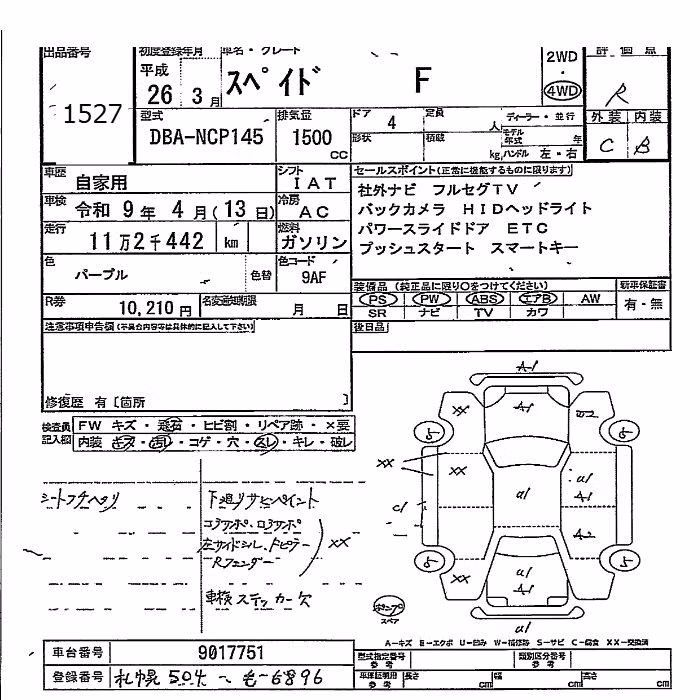 出品番号 初度登録年月 車名・グレード 2WD 評価点
1527 平成 26 3月 スペイド F ・ 4WD R
型式 排気量 ドア 4 定員 人 ディーラー・並行 外装 内装
DBA-NCP145 1500 cc 形状 積載 kg モデル年式 年 ハンドル 左・右 C B
車歴 自家用 シフト IAT セールスポイント(正常に機能するものに限ります)
車検 令和 9年 4月(13日) 冷房 AC 社外ナビ フルセグTV
走行 11万2千442 km 燃料 ガソリン バックカメラ HIDヘッドライト
パワースライドドア ETC
色 パープル 色替 色コード 9AF プッシュスタート スマートキー
R券 10,210円 名変通知期限 月 日 装備品(純正品に限り○をつけてください) 新車保証書
PS PW ABS エアB AW 有・無
SR ナビ TV カワ
注意事項申告欄(不具合内容等は具体的に記入して下さい) 後日品
修復歴 有〔箇所 〕
検査員記入欄 FW キズ・飛石・ヒビ割・リペア跡・×要
内装 キズ・汚れ・コゲ・穴・スレ・キレ・破レ
シートフチヘタリ 下廻りサビペイント
コアサポ、ロアサポ
左サイドシル、ドピラー XX
Rフェンダー
車検ステッカー欠
A1
XX A1 U2
5 5
XX XX U1 A1
C1 U1
A2
5 5
XX U1 A1
ポンプ
スペア U1
A-キズ E-エクボ U-凹み W-補修跡 S-サビ C-腐食 XX-交換済
車台番号 9017751 型式指定番号 参考 類別区分番号 参考
登録番号 札幌504 も-6896 車庫証明用 参考 長さ cm 幅 cm 高さ cm